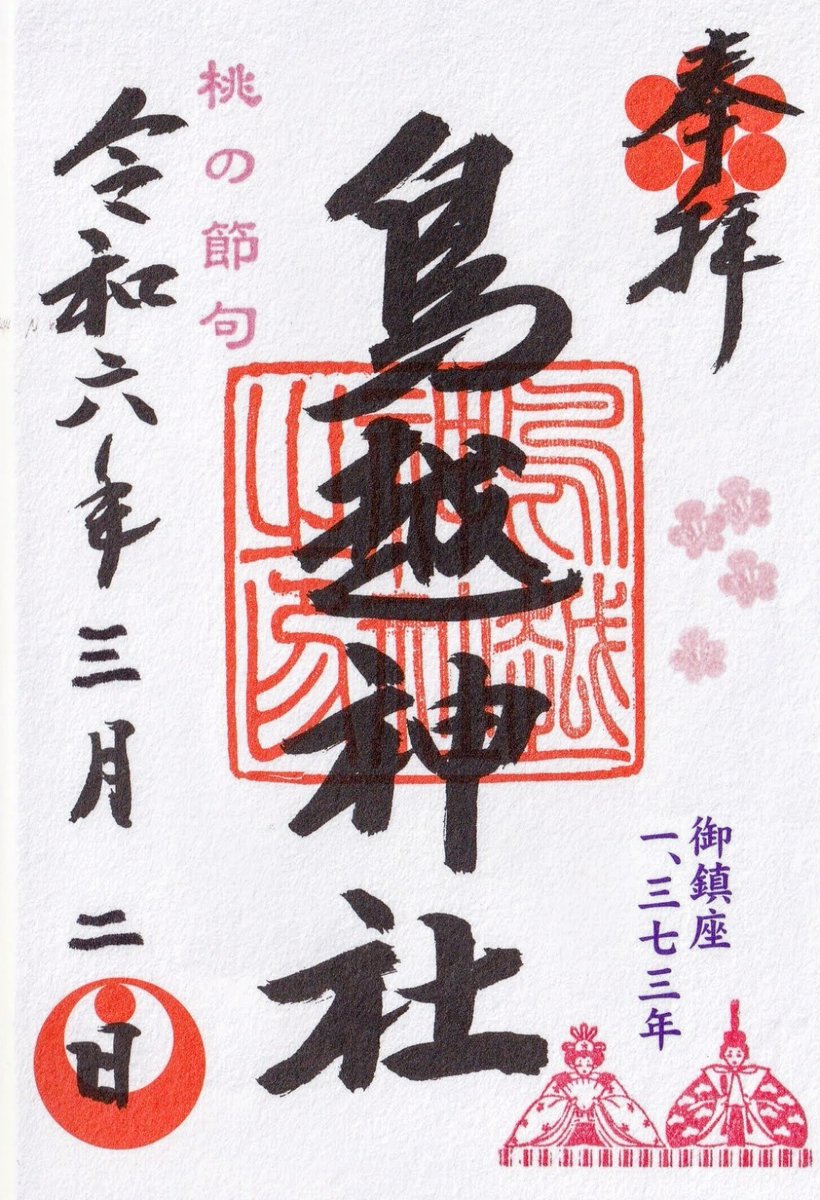 奉拝
御鎮座
一、三七三年
鳥越神社
鳥越神社之印
桃の節句
令和六年三月二日